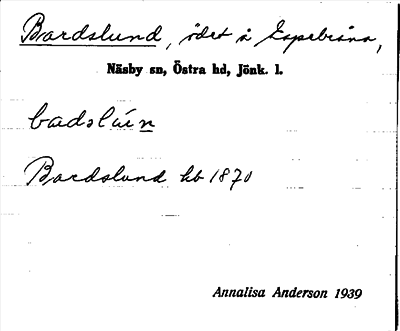 Bardslund, ödet å Espebråna,
Näsby sn, Östra hd, Jönk. l.
badslúεn
Bardslund hb 1870
Annalisa Anderson 1939